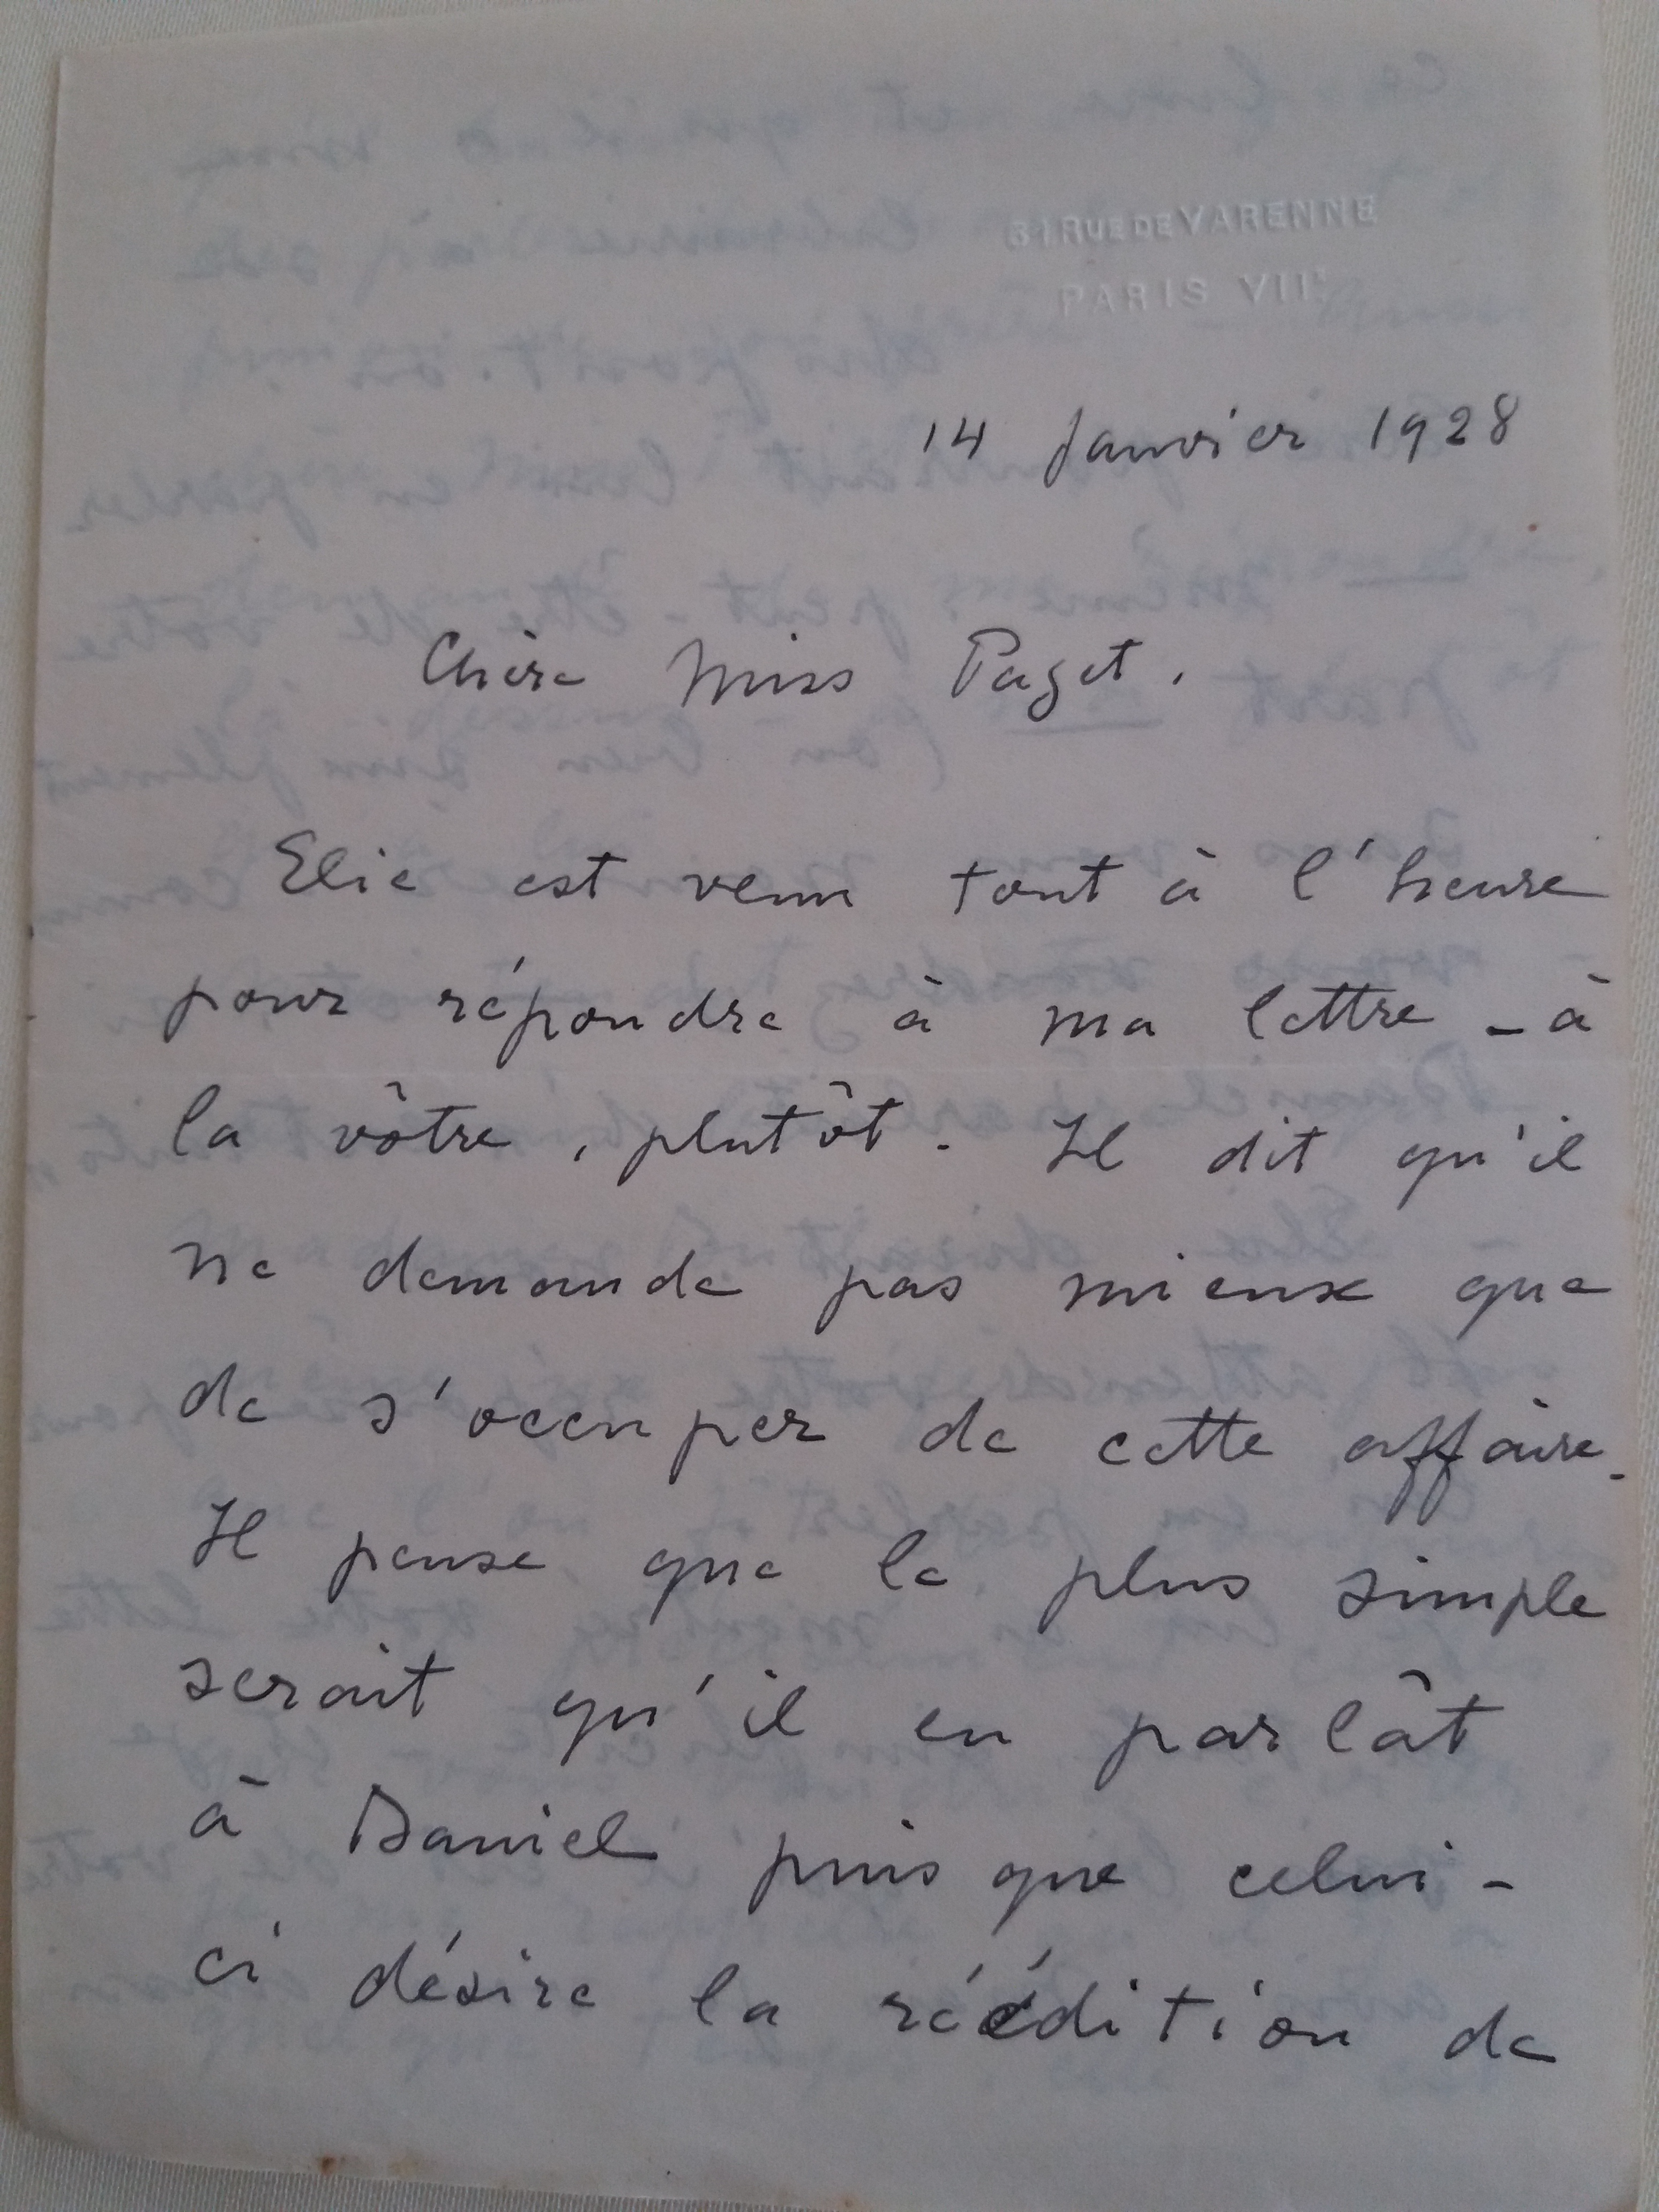 31 RUE DE VARENNE
PARIS VIIe
14 Janvier 1928
Chère Miss Paget.
Elie est venu tout à l'heure
pour répondre à ma lettre - à
la vôtre, plutôt. Il dit qu'il
ne demande pas mieux que
de s'occuper de cette affaire.
Il pense que le plus simple
serait qu'il en parlât
à Daniel puis que celui-
ci désire la réédition de